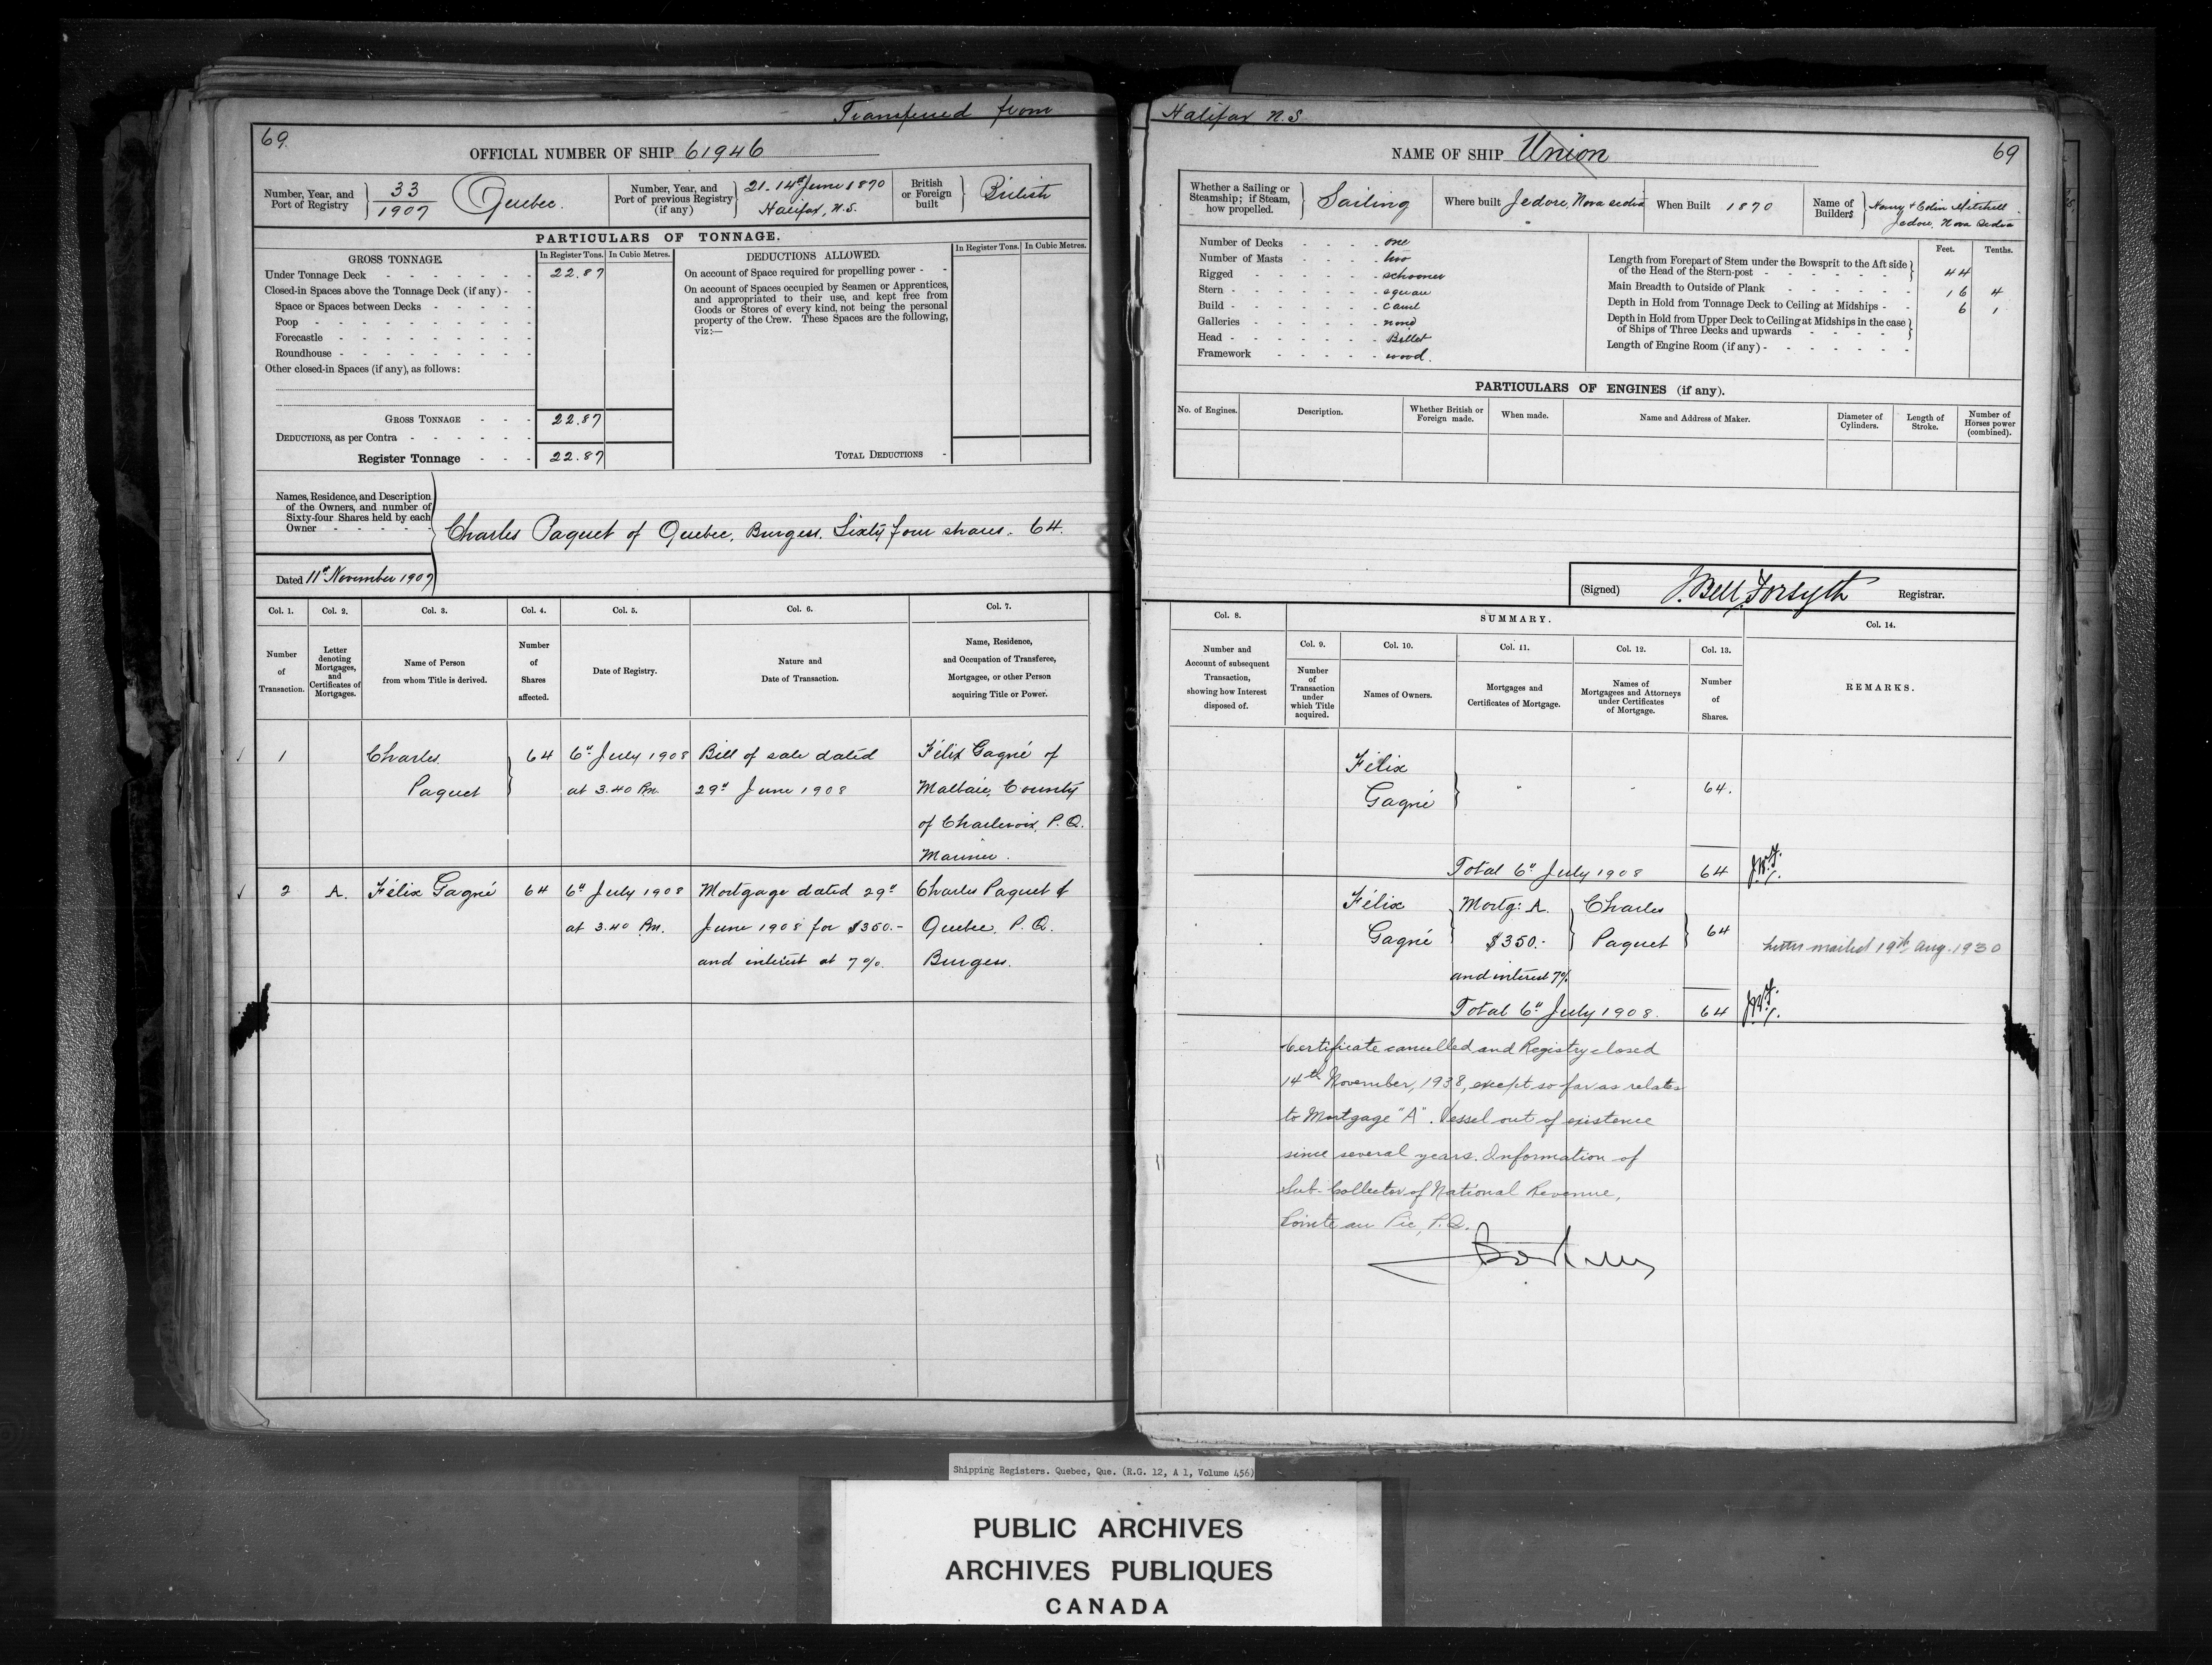 Transferred from
69.
OFFICIAL NUMBER OF SHIP 61946
Number, Year, and Port of Registry } 33/1907 Quebec.
Number, Year, and Port of previous Registry (if any) } 21-14th June 1870 Halifax, N.S.
British or Foreign built } British
PARTICULARS OF TONNAGE.
GROSS TONNAGE. In Register Tons. In Cubic Metres.
Under Tonnage Deck - - - - - - - 22.87
Closed-in Spaces above the Tonnage Deck (if any) - -
Space or Spaces between Decks - - - - -
Poop - - - - - - - - - -
Forecastle - - - - - - - - -
Roundhouse - - - - - - - - -
Other closed-in Spaces (if any), as follows:
GROSS TONNAGE - - - 22.87
DEDUCTIONS, as per Contra - - - - - - 
Register Tonnage - - - 22.87
DEDUCTIONS ALLOWED. In Register Tons. In Cubic Metres.
On account of Space required for propelling power - -
On account of Spaces occupied by Seamen or Apprentices,
and appropriated to their use, and kept free from
Goods or Stores of every kind, not being the personal
property of the Crew. These Spaces are the following,
viz:—
TOTAL DEDUCTIONS -
Names, Residence, and Description
of the Owners, and number of
Sixty-four Shares held by each
Owner - - - - -
Charles Paquet of Quebec, Burgess. Sixty four shares. 64.
Dated 11th November 1907
Col. 1. Col. 2. Col. 3. Col. 4. Col. 5. Col. 6. Col. 7.
Number of Transaction.
Letter denoting Mortgages, and Certificates of Mortgages.
Name of Person from whom Title is derived.
Number of Shares affected.
Date of Registry.
Nature and Date of Transaction.
Name, Residence, and Occupation of Transferee, Mortgagee, or other Person acquiring Title or Power.
1 Charles } 64 6th July 1908 Bill of sale dated Félix Gagné of
Paquet at 3.40 Pm. 29th June 1908 Malbaie, County
of Charlevoix, P.Q.
Mariner.
2 A. Félix Gagné 64 6th July 1908 Mortgage dated 29th Charles Paquet of
at 3.40 Pm. June 1908 for $350.- Quebec. P.Q.
and interest at 7%. Burgess.
Halifax N.S
NAME OF SHIP Union
69
Whether a Sailing or Steamship; if Steam, how propelled. } Sailing
Where built Jedore, Nova Scotia
When Built 1870
Name of Builders } Henry & Colin Mitchell Jedore, Nova Scotia
Number of Decks - - - - one
Number of Masts - - - - two
Rigged - - - - - - schooner
Stern - - - - - - - square
Build - - - - - - - carvel
Galleries - - - - - - none
Head - - - - - - - Billet
Framework - - - - - wood.
Feet. Tenths.
Length from Forepart of Stem under the Bowsprit to the Aft side
of the Head of the Stern-post - - - - - - - 44
Main Breadth to Outside of Plank - - - - - - 16 4
Depth in Hold from Tonnage Deck to Ceiling at Midships - - 6 1
Depth in Hold from Upper Deck to Ceiling at Midships in the case
of Ships of Three Decks and upwards - - - - -
Length of Engine Room (if any) - - - - - - -
PARTICULARS OF ENGINES (if any).
No. of Engines.
Description.
Whether British or Foreign made.
When made.
Name and Address of Maker.
Diameter of Cylinders.
Length of Stroke.
Number of Horses power (combined).
(Signed) J. Bell Forsyth Registrar.
Col. 8. SUMMARY. Col. 14.
Col. 9. Col. 10. Col. 11. Col. 12. Col. 13.
Number and Account of subsequent Transaction, showing how Interest disposed of.
Number of Transaction under which Title acquired.
Names of Owners.
Mortgages and Certificates of Mortgage.
Names of Mortgagees and Attorneys under Certificates of Mortgage.
Number of Shares.
REMARKS.
Félix
Gagné } " " 64.
Total 6th July 1908 64
Félix Mortg: A. Charles
Gagné $350.- Paquet 64
and interest 7%.
Letter mailed 19th Aug. 1930
Total 6th July 1908. 64
Certificate cancelled and Registry closed
14th November, 1938, except so far as relates
to Mortgage "A". Vessel out of existence
since several years. Information of
Sub-Collector of National Revenue,
Pointe au Pic, P.Q.
Shipping Registers. Quebec, Que. (R.G. 12, A 1, Volume 456)
PUBLIC ARCHIVES
ARCHIVES PUBLIQUES
CANADA